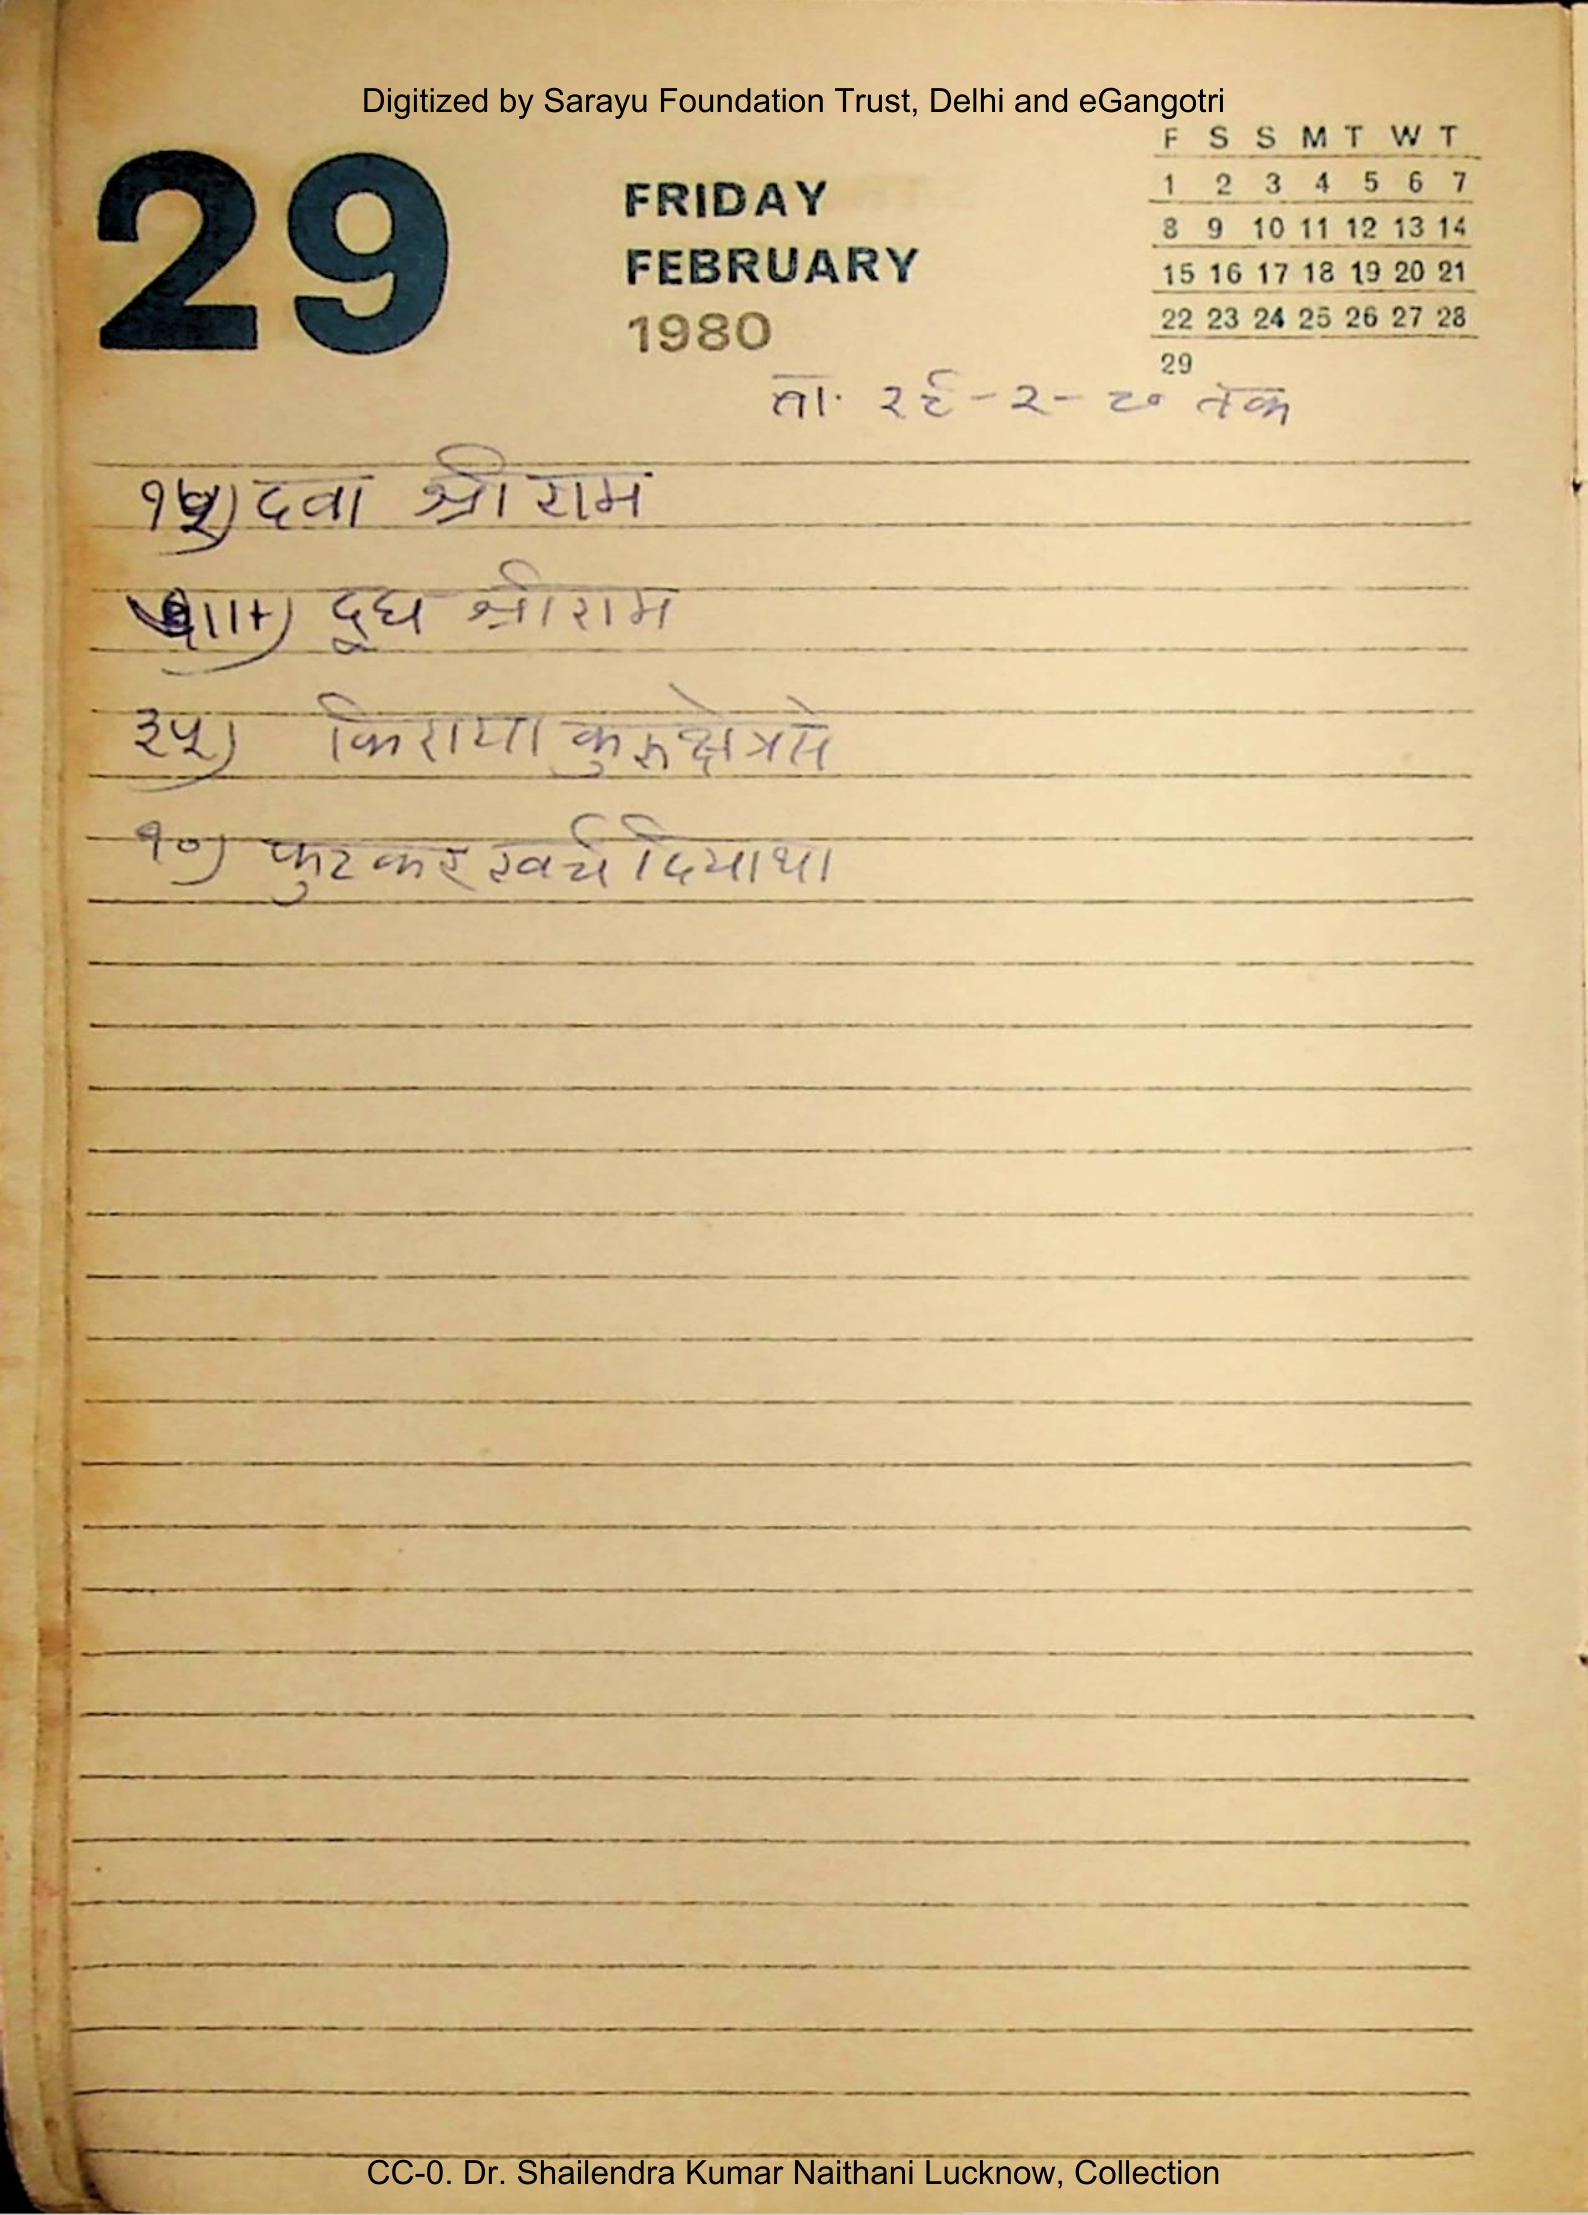 Digitized by Sarayu Foundation Trust, Delhi and eGangotri
F S S M T W T
1 2 3 4 5 6 7
8 9 10 11 12 13 14
15 16 17 18 19 20 21
22 23 24 25 26 27 28
29
29
FRIDAY
FEBRUARY
1980
ता. २६-२-८० तक
१५) दवा श्रीराम
दूध श्रीराम
३५) किराया कुरुक्षेत्र से
१०) फुटकर खर्च दिया था
CC-0. Dr. Shailendra Kumar Naithani Lucknow, Collection